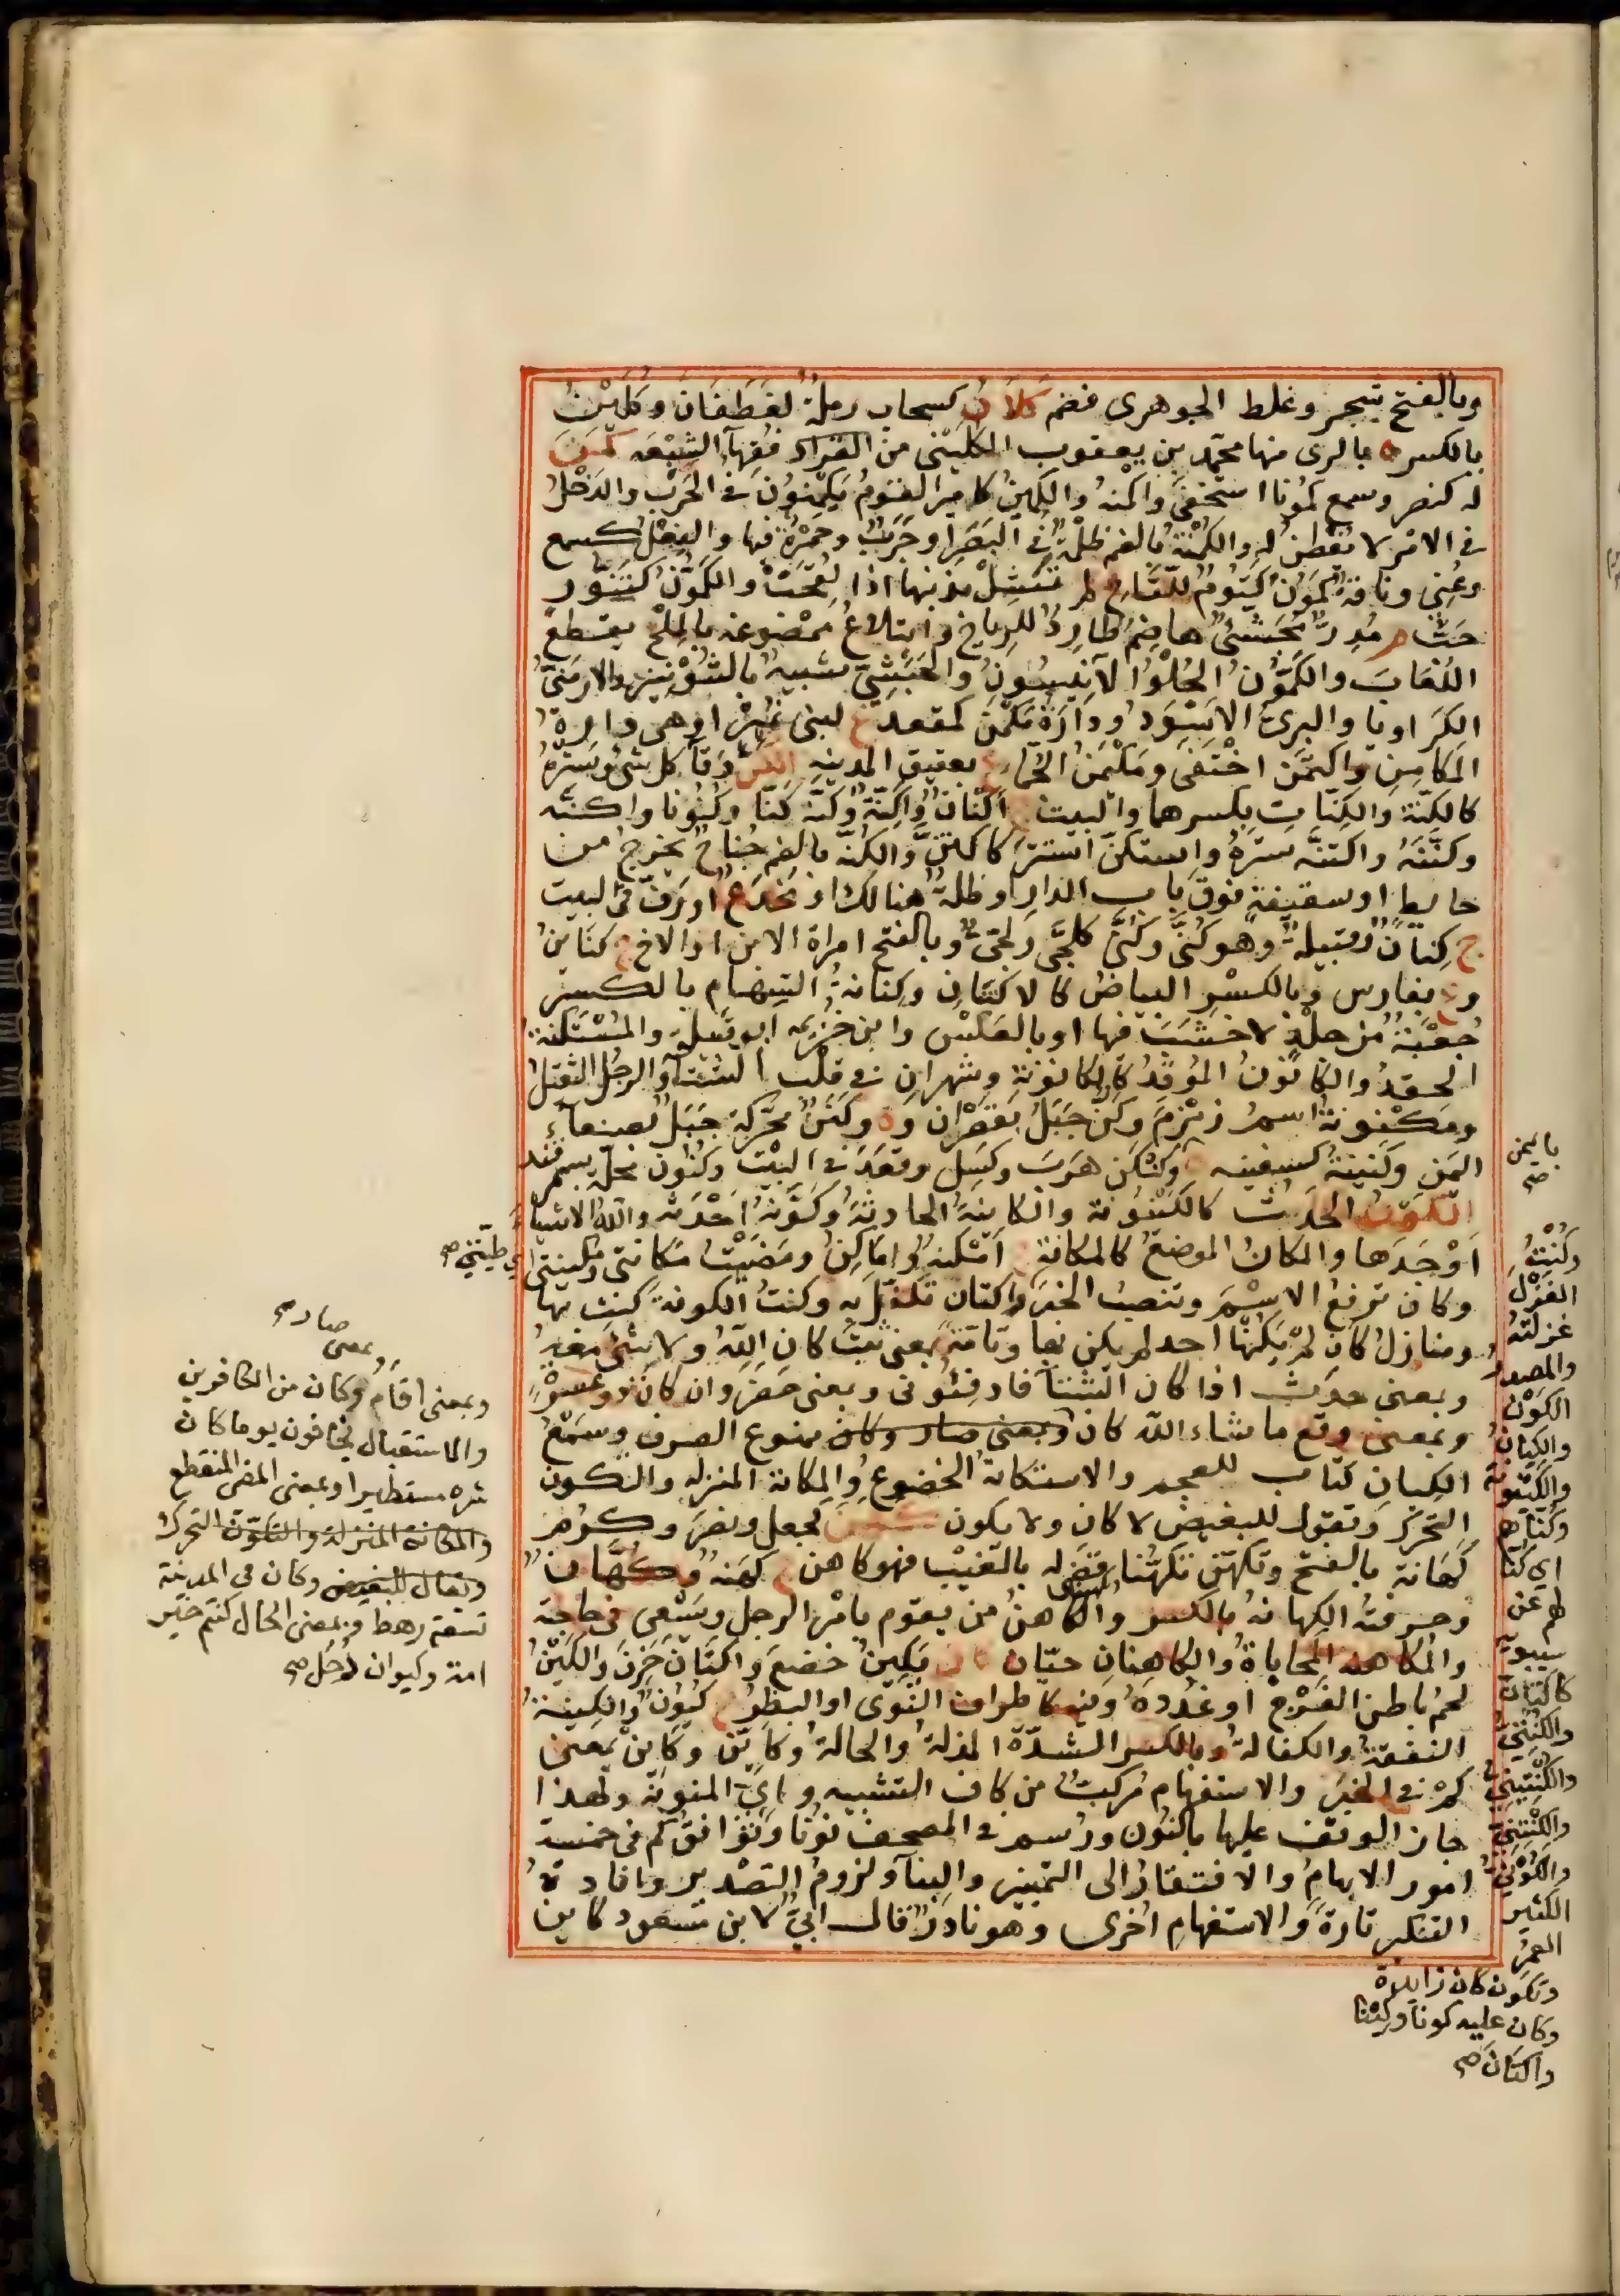 وبالفتح شجر وغلط الجوهرى فضم كَلَانُ كسحاب رملة لغطفان وكلين
بالكسر ه بالرى منها محمد بن يعقوب الكلينى من فقهآء الشيعه كمن
له كنصر وسمع كمونا استخفى واكمنه والكمين كامير القوم يكمنون فى الحرب والدخل
فى الامر لا يفطن له والكمنة بالضم ظلمة فى البصر او جرب وحمرة فيها والفعل كسمع
وعنى وناقة كمون كتوم للقاح لم تشل بذنبها اذا لقحت والكمون كتنور
حب م مدر مجش هاضم طارد للرياح وابتلاع ممضوغه بالملح يقطع
اللعاب والكمون الحلو الانيسون والحبشى شبيه بالشونيز والارمنى
الكراويا والبرى الاسود ودارة مكمن كمقعد ع لبنى نمير او هى دارة
المكامن واكتمن اختفى ومكيمن الجمآء ع بعقيق المدينه الكن وقآء كل شئ وستره
كالكنة والكنان بكسرهما والبيت ج اكنان واكنة وكنه كنا وكنونا واكنه
وكننه واكتنه ستره واستكن استتر كاكتن والكنة بالضم جناح يخرج من
حايط او سقيفة فوق باب الدار او ظلة هنالك او مخدع او رف فى البيت
ج كنان وقبيلة وهو كنى وكنى كلجى ولجى وبالفتح امراة الابن او الاخ ج كناين
وع بفارس وبالكسر البياض كالاكتنان وكنانة السهام بالكسر
جعبة من جلد لا خشب فيها او بالعكس وابن خزيمه ابو قبيلة والمستكنة
الحقد والكانون الموقد كالكانونة وشهران فى قلب الشتآء والرجل الثقيل
ومكنونة اسم زمزم وكن جبل بقصران وه وكنن محركة جبل بصنعآء
اليمن وكنينة كسفينه ه وكنكن هرب وكسل وقعد فى البيت وكنون محلة بسمرقند
الكون الحدث كالكينونة والكاينة الحادثة وكونه احدثه والله الاشيآء
اوجدها والمكان الموضع كالمكانة ج امكنة واماكن ومضيت مكانتى ومكينتى اى طيتى صح
وكان ترفع الاسم وتنصب الخبر واكتان تكفل به وكنت الكوفة كنت بها
ومنازل كان لم يكنها احد لم يكن بها وتامة بمعنى ثبت كان الله ولا شئ معه
وبمعنى حدث اذا كان الشتآء فادفئونى وبمعنى حضر وان كان ذو عسرة
وبمعنى وقع ما شاء الله كان وبمعنى صار وكان ممنوع الصرف وسمع
الكيان كتاب للعجم والاستكانة الخضوع والمكانة المنزله والتكون
التحرك وتقول للبغيض لا كان ولا يكون كهن كجعل ونصر وكرم
كهانة بالفتح وتكهن تكهنا قضى له بالغيب فهو كاهن ج كهنة وكهان
وحرفته الكهانة بالكسر والكاهن من يقوم بامر الرجل ويسعى فى حاجته
والمكاهنة المحاباة والكاهنان حيان كان يكين خضع واكتان حزن والكين
لحم باطن الفرج او غدد فيه كاطراف النوى او البظر ج كيون والكينة
النفقة والكفالة وبالكسر الشدة المذلة والحالة وكاين وكاين بمعنى
كم فى الخبر والاستفهام مركب من كاف التشبيه واى المنونة ولهذا
جاز الوقف عليها بالنون ورسم فى المصحف نونا وتوافق كم فى خمسة
امور الابهام والافتقار الى التمييز والبنآء ولزوم التصدير وافادة
التنكير تارة والاستفهام اخرى وهو نادر قال ابى لابن مسعود كاين
باليمن
صح
وكنت
الغزل
غزلته
والمصدر
الكون
والكيان
والكينونة
وكناهم
اى كنا
لهم عن
سيبويه
كاكتان
والكنتى
والكنتنى
والكونى
الكثير
العمر
وتكون كان زايدة
وكان عليه كونا وكيانا
واكتان صح
صار صح
وبمعنى
وبمعنى اقام وكان من الكافرين
والاستقبال يخافون يوما كان
شره مستطيرا وبمعنى المضى المنقطع
والمكانة المنزلة والتكون التحرك
ويقال للبغيض وكان فى المدينة
تسعة رهط وبمعنى الحال كنتم خير
امة وكيوان زحل صح